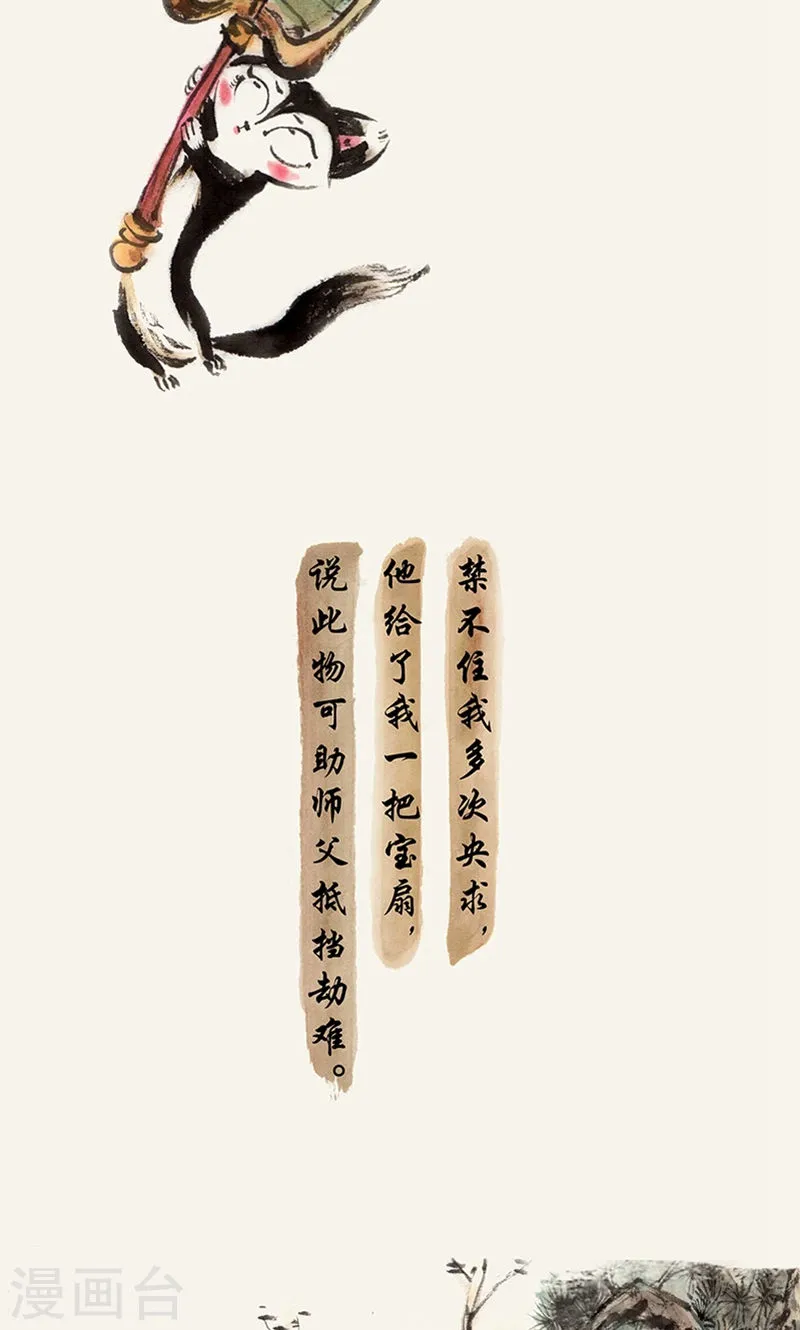 禁不住我多次央求，
他给了我一把宝扇，
说此物可助师父抵挡劫难。
漫画台